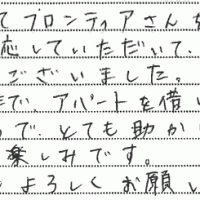 てフロンティアさんを
応していただいて、
ございました。
で、アパートを借い
ので、とても助かり
楽しみです。
よろしくお願いし